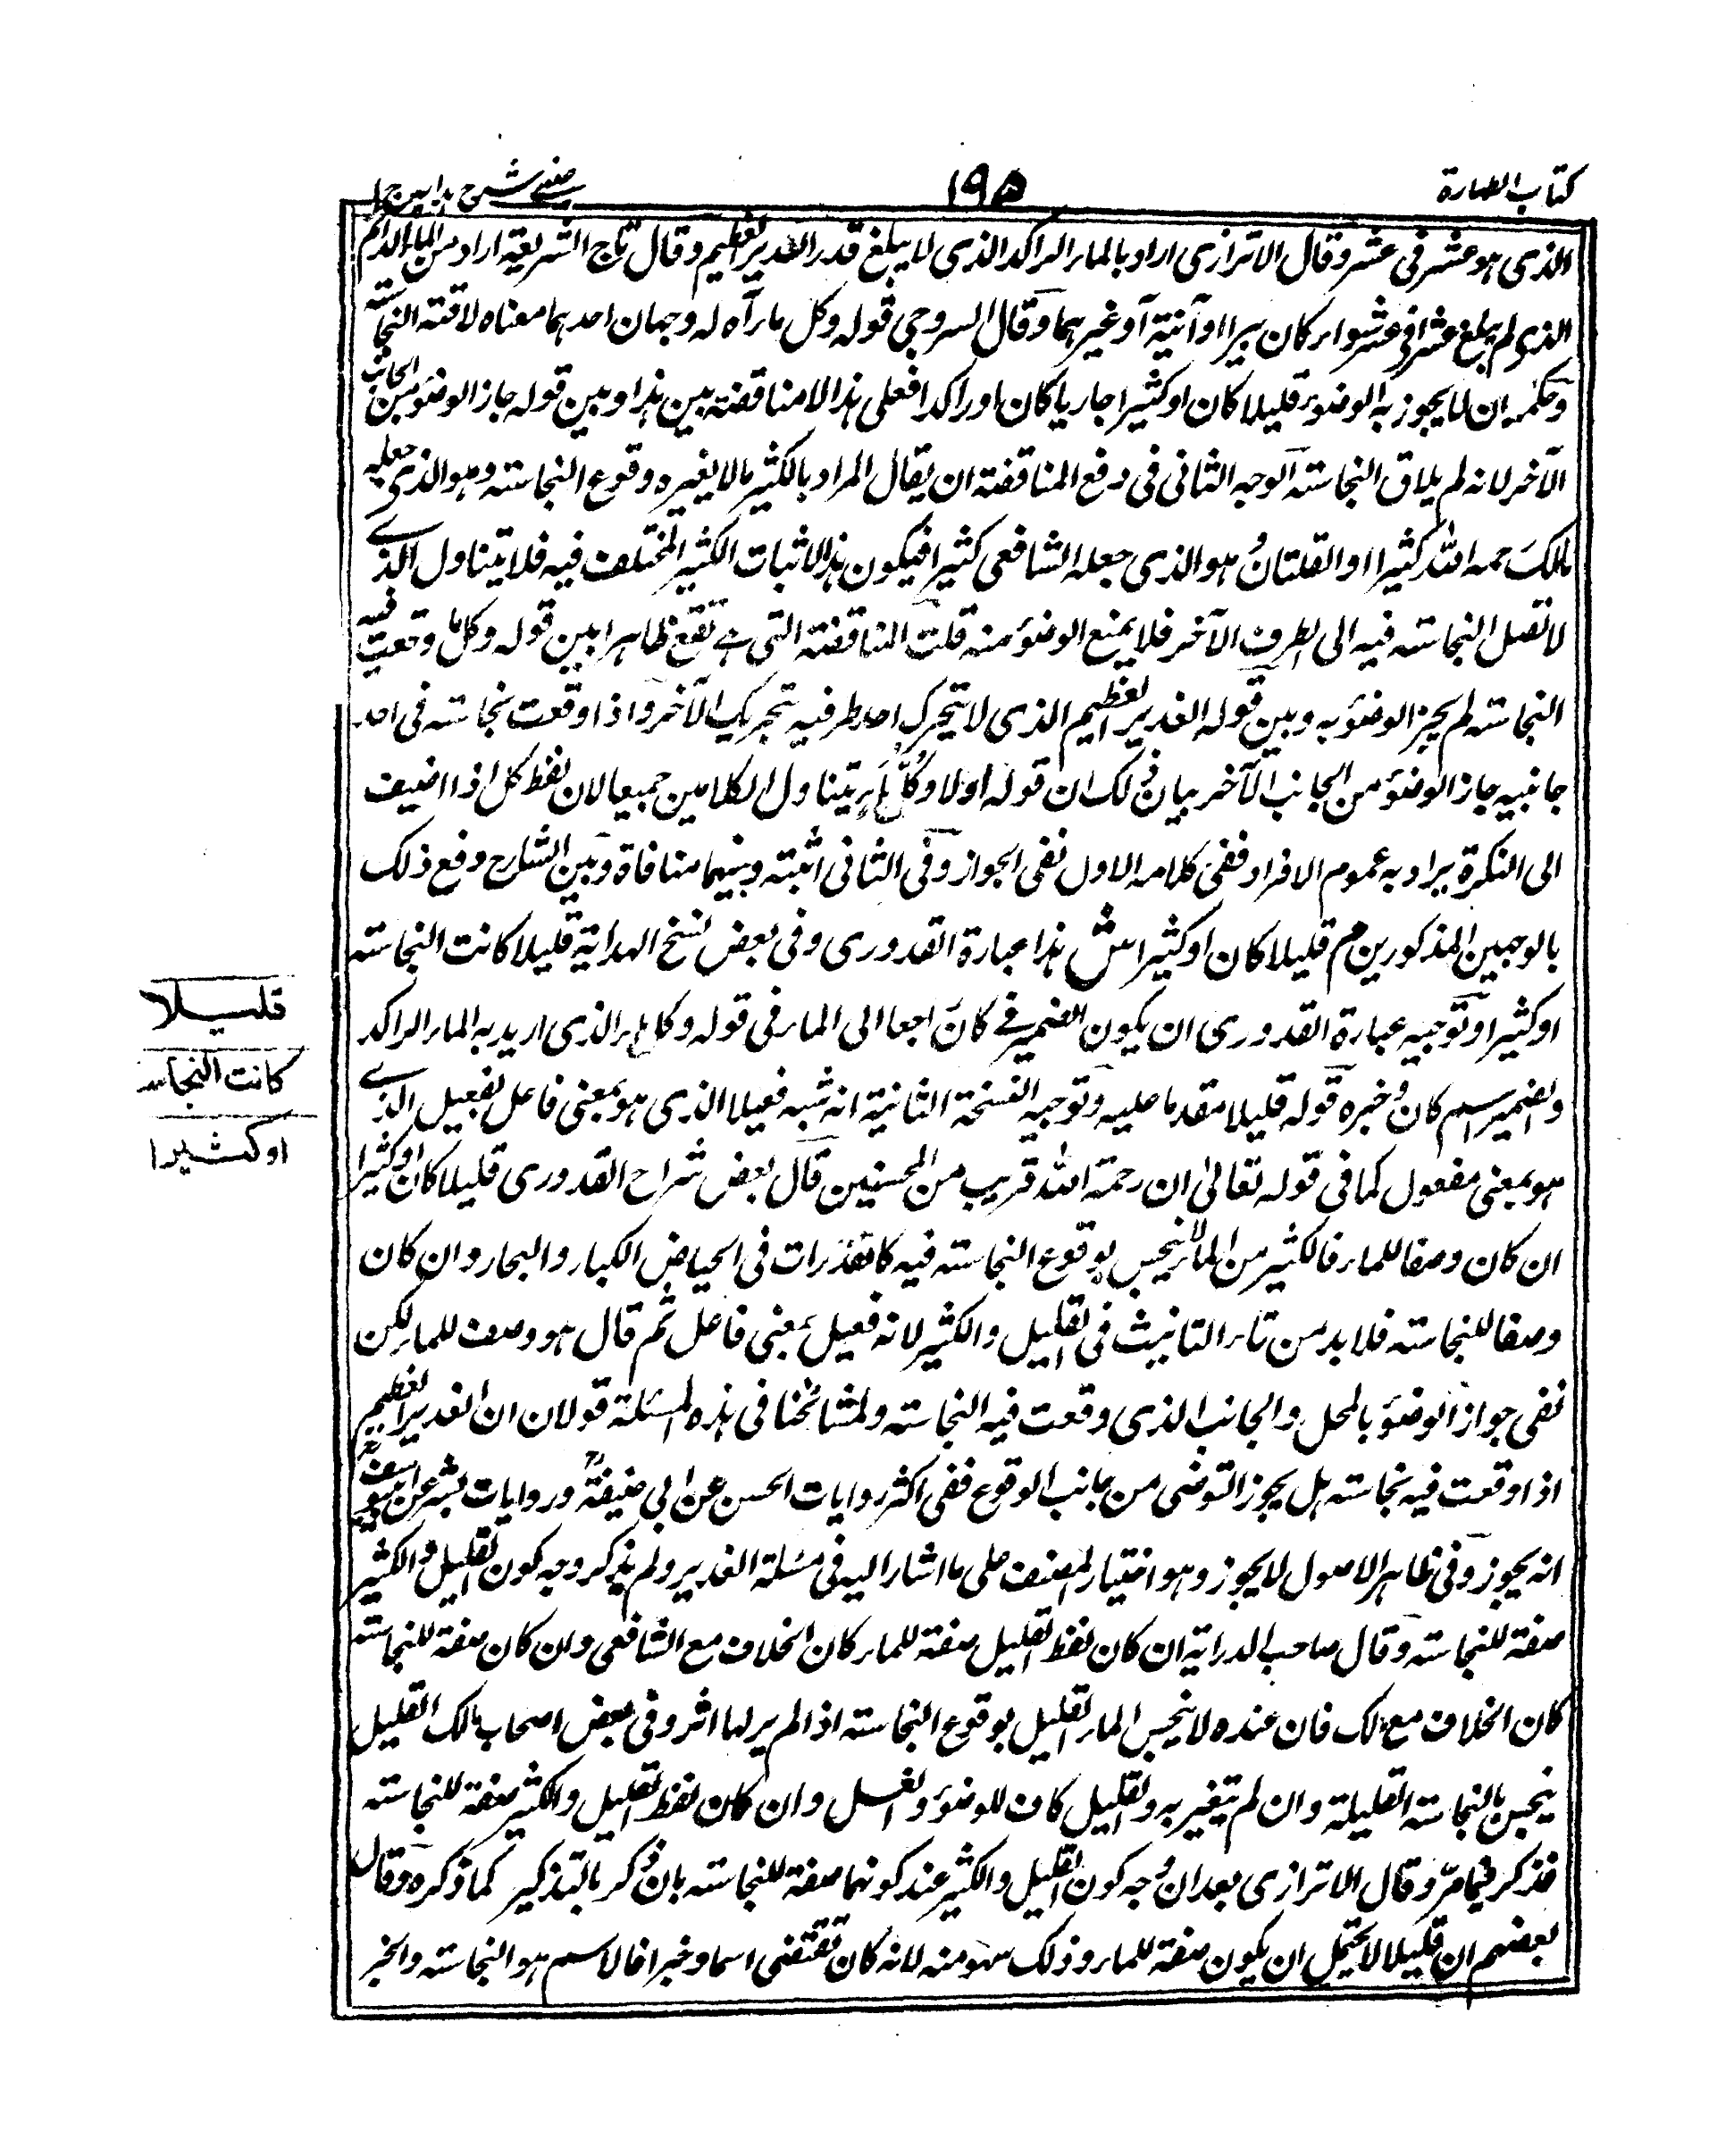 كتاب الطهارة
١٩٥
عيني شرح هدايه ج ١
الذي هو عشر في عشر وقال الاترازي اراد بالماء الراكد الذي لا يبلغ قدر الغدير العظيم وقال تاج الشريعة اراد من الماء الدائم
الذي لم يبلغ عشرا في عشر سواء كان بيرا او آنية او غيرهما وقال السروجي قوله وكل ماء آه له وجهان احدهما معناه لاقته النجاسته
وحكمه ان لا يجوز به الوضوء قليلا كان او كثيرا جاريا كان او راكدا فعلى هذا لا مناقضة بين هذا وبين قوله جاز الوضوء من الجانب
الآخر لانه لم يلاق النجاسته الوجه الثاني في دفع المناقضة ان يقال المراد بالكثير مالا يغيره وقوع النجاسته وهو الذي جعله
مالك رحمه الله كثيرا او القلتان هو الذي جعله الشافعي كثيرا فيكون هذا لاثبات الكثير المختلف فيه فلا يتناول الذي
لا تصل النجاسته فيه الى الطرف الآخر فلا يمنع الوضوء منه قلت المناقضة التي هي تقع ظاهرا بين قوله وكل ما وقعت فيه
النجاسته لم يجز الوضوء به وبين قوله الغدير العظيم الذي لا يتحرك احد طرفيه بتحريك الآخر واذا وقعت نجاسته في احد
جانبيه جاز الوضوء من الجانب الآخر بيان ذلك ان قوله اولا وكل ماء يتناول الكلامين جميعا لان لفظ كل اذا اضيف
الى النكرة يراد به عموم الافراد ففي كلامه الاول نفى الجواز وفي الثاني اثبته وبينهما منافاة وبين الشارح دفع ذلك
بالوجهين المذكورين م قليلا كان او كثيرا ش هذا عبارة القدوري وفي بعض نسخ الهداية قليلا كانت النجاسته
او كثيرا وتوجيه عبارة القدوري ان يكون الضمير في كان راجعا الى الماء في قوله وكل ماء الذي اريد به الماء الراكد
والضمير اسم كان وخبره قوله قليلا مقدما عليه وتوجيه النسخة الثانية انه شبه فعيلا الذي هو بمعنى فاعل بفعيل الذي
هو بمعنى مفعول كما في قوله تعالى ان رحمة الله قريب من المحسنين قال بعض شراح القدوري قليلا كان او كثيرا
ان كان وصفا للماء فالكثير من الماء لا ينجس بوقوع النجاسته فيه كالقذرات في الحياض الكبار والبحار وان كان
وصفا للنجاسته فلا بد من تاء التانيث في القليل والكثير لانه فعيل بمعنى فاعل ثم قال هو وصف للماء لكن
نفى جواز الوضوء بالمحل والجانب الذي وقعت فيه النجاسته ولمشائخنا في هذه المسئلة قولان ان الغدير العظيم
اذا وقعت فيه نجاسته هل يجوز التوضى من جانب الوقوع ففي اكثر روايات الحسن عن ابي حنيفة وروايات بشر عن ابي يوسف
انه يجوز وفي ظاهر الاصول لا يجوز وهو اختيار المصنف على ما اشار اليه في مسئلة الغدير ولم يذكر وجه كون القليل والكثير
صفة للنجاسته وقال صاحب الدراية ان كان لفظ القليل صفة للماء كان الخلاف مع الشافعي وان كان صفة للنجاسته
كان الخلاف مع مالك فان عنده لا ينجس الماء القليل بوقوع النجاسته اذا لم ير لها اثر وفي بعض اصحاب مالك القليل
ينجس بالنجاسته القليلة وان لم يتغير به والقليل كاف للوضوء والغسل وان كان لفظ القليل والكثير صفة للنجاسته
فذكر فيما مر وقال الاترازي بعد ان وجه كون القليل والكثير عند كونهما صفة للنجاسته بان ذكر بالتذكير كما ذكره وقال
بعضهم ان قليلا لا يحتمل ان يكون صفة للماء وذلك سهو منه لانه كان تقتضى اسما وخبرا فالاسم هو النجاسته والخبر
قليلا
كانت النجاسه
او كثيرا